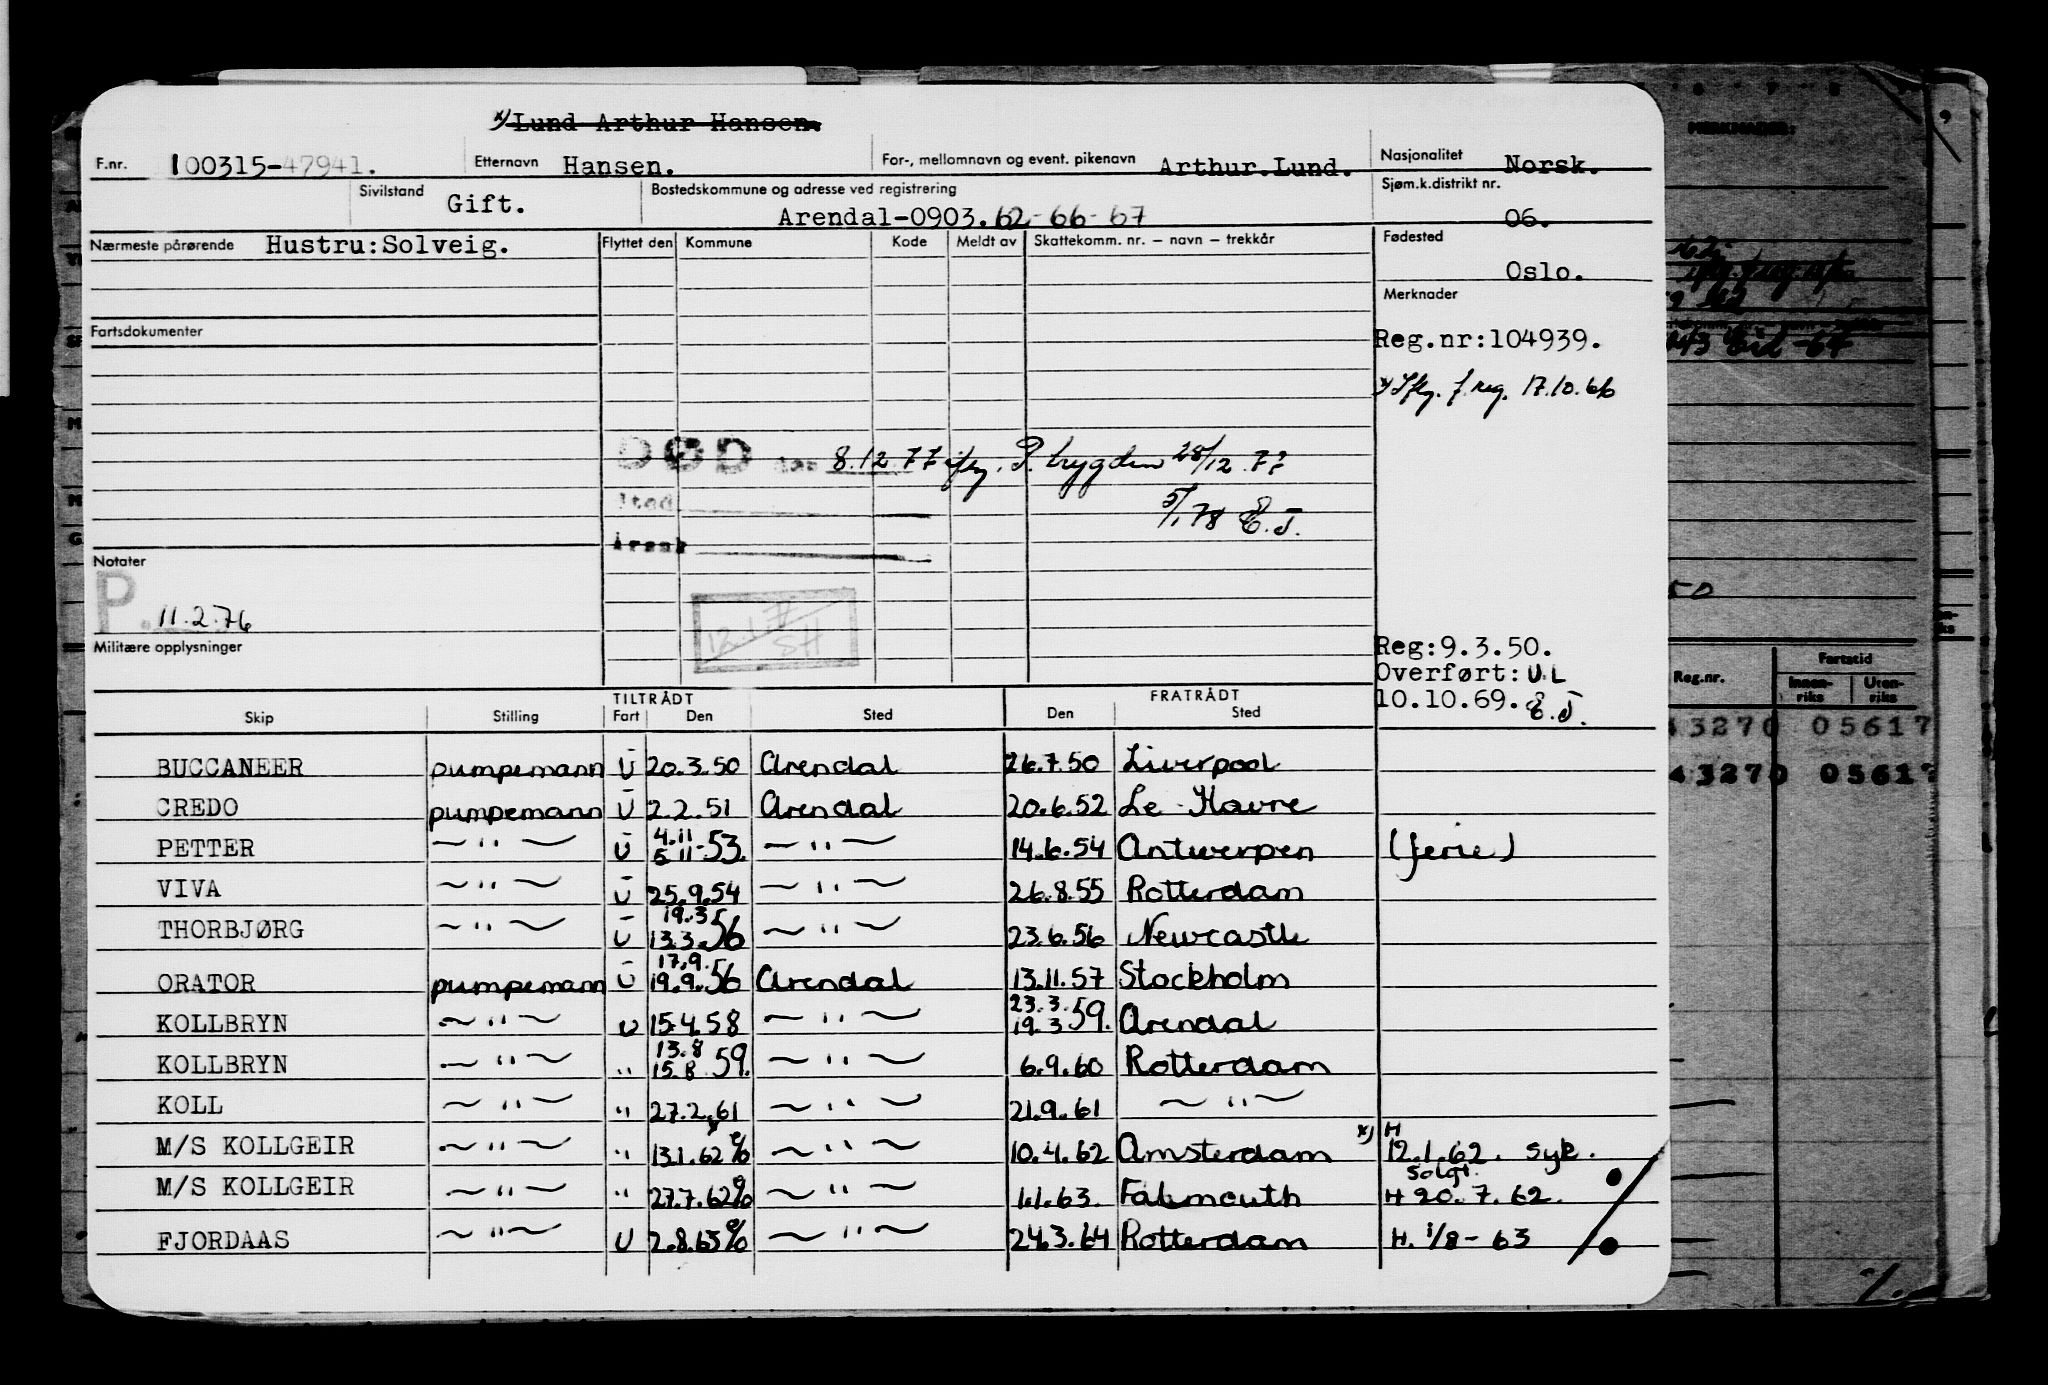 x) Lund Arthur Hansen.
F.nr. 100315-47941. Etternavn Hansen. For-, mellomnavn og event. pikenavn Arthur.Lund. Nasjonalitet Norsk.
Sivilstand Gift. Bostedskommune og adresse ved registrering Arendal-0903. 62-66-67 Sjøm.k.distrikt nr. 06.
Nærmeste pårørende Hustru:Solveig. Flyttet den Kommune Kode Meldt av Skattekomm. nr. – navn – trekkår Fødested
Oslo.
Merknader
Fartsdokumenter
Reg.nr:104939.
x) Iflg. f.reg. 17.10.66
DØD den 8.12.77 iflg. P. trygden 28/12 77
I sted
5/1 78 E.J.
Årsak
Notater
P. 11.2.76
12.1.77
SH
Militære opplysninger
Reg:9.3.50.
Overført: U.L
10.10.69. E.J.
TILTRÅDT FRATRÅDT
Skip Stilling Fart Den Sted Den Sted
BUCCANEER pumpemann U 20.3.50 Arendal 26.7.50 Liverpool
CREDO pumpemann U 2.2.51 Arendal 20.6.52 Le Havre
PETTER — " — U 4.11 5.11-53. — " — 14.6.54 Antwerpen (ferie)
VIVA — " — U 25.9.54 — " — 26.8.55 Rotterdam
THORBJØRG — " — U 19.3 13.3.56 — " — 23.6.56 Newcastle
ORATOR pumpemann U 17.9. 19.9.56 Arendal 13.11.57 Stockholm
KOLLBRYN — " — U 15.4.58 — " — 23.3. 19.3 59. Arendal
KOLLBRYN — " — " 13.8 15.8 59. — " — 6.9.60 Rotterdam
KOLL — " — " 27.2.61 — " — 21.9.61 — " —
M/S KOLLGEIR — " — " 13.1.62 % — " — 10.4.62 Amsterdam x) H 12.1.62. syk.
Solgt.
M/S KOLLGEIR — " — " 27.7.62 % — " — 1.1.63. Falmouth H 20.7.62.
FJORDAAS — " — U 2.8.63 % — " — 24.3.64 Rotterdam H. 1/8-63
MERKNADER:
Reg.nr. Fartstid
Innen-riks Uten-riks
43270 05617
43270 05617